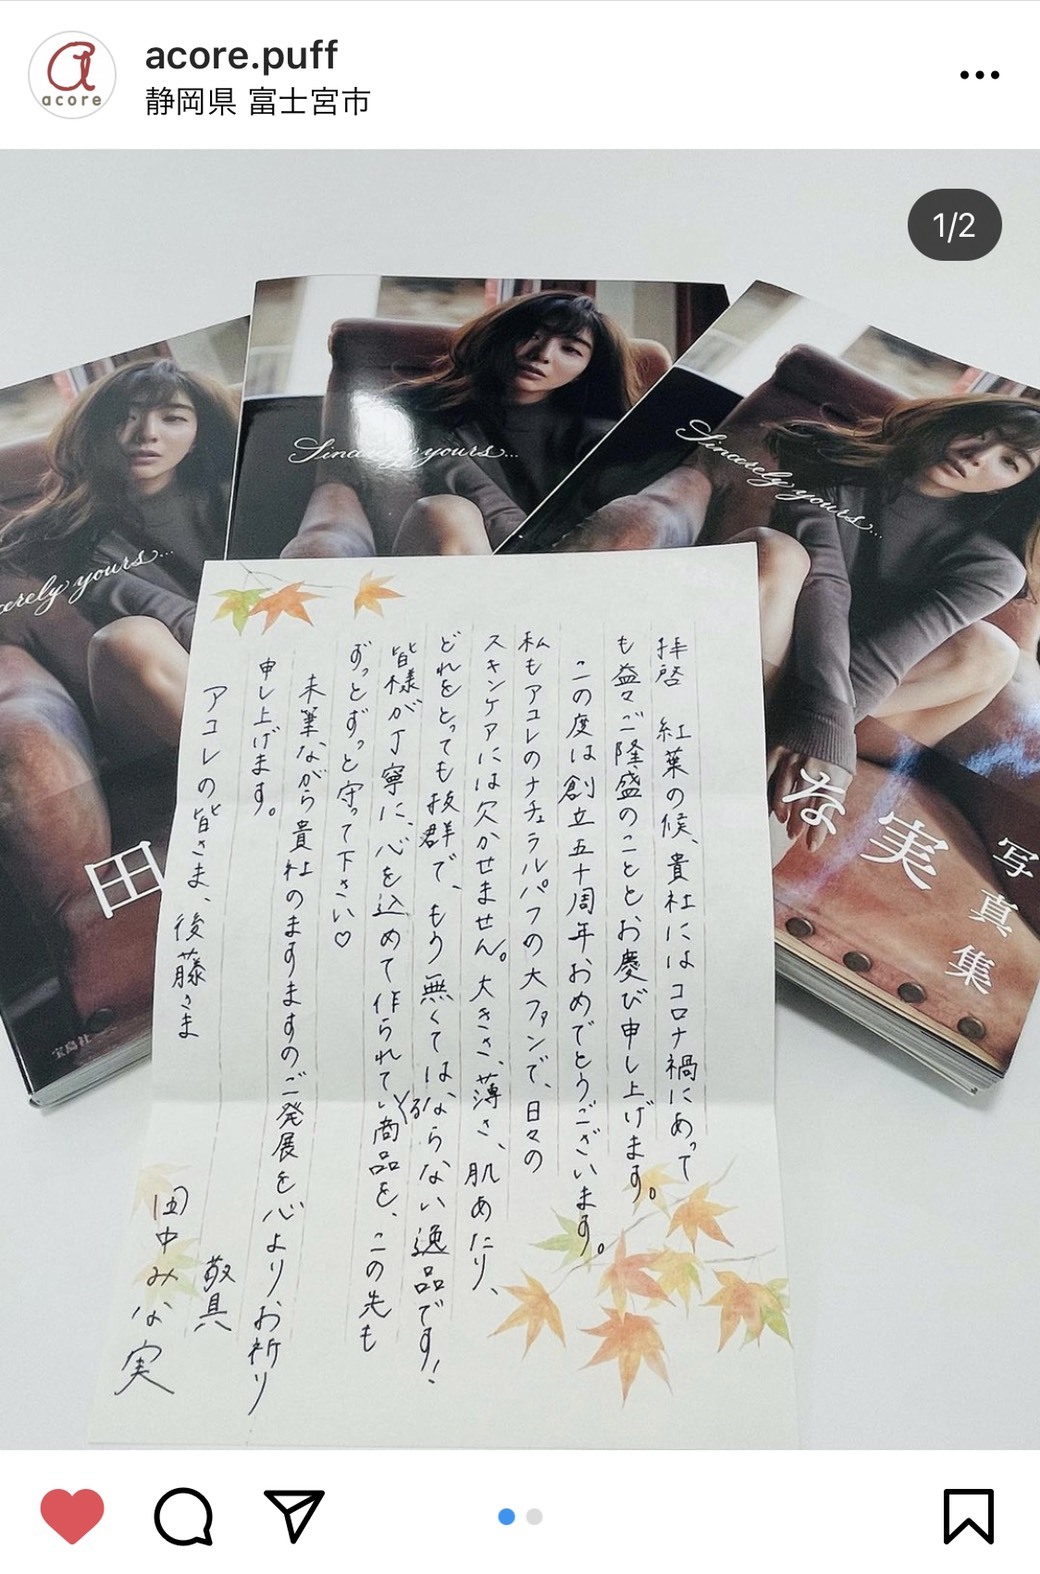 acore
acore.puff
静岡県 富士宮市
1/2
Sincerely yours...
Sincerely yours...
erely yours...
田
な実
写真集
宝島社
拝啓 紅葉の候、貴社にはコロナ禍にあって
も益々ご隆盛のこととお慶び申し上げます。
この度は創立五十周年おめでとうございます。
私もアコレのナチュラルパフの大ファンで、日々の
スキンケアには欠かせません。大きさ、薄さ、肌あたり、
どれをとっても抜群で、もう無くてはならない逸品です!
皆様が丁寧に、心を込めて作られている商品を、この先も
ずっとずっと守って下さい♡
末筆ながら貴社のますますのご発展を心よりお祈り
申し上げます。
敬具
アコレの皆さま、後藤さま
田中みな実